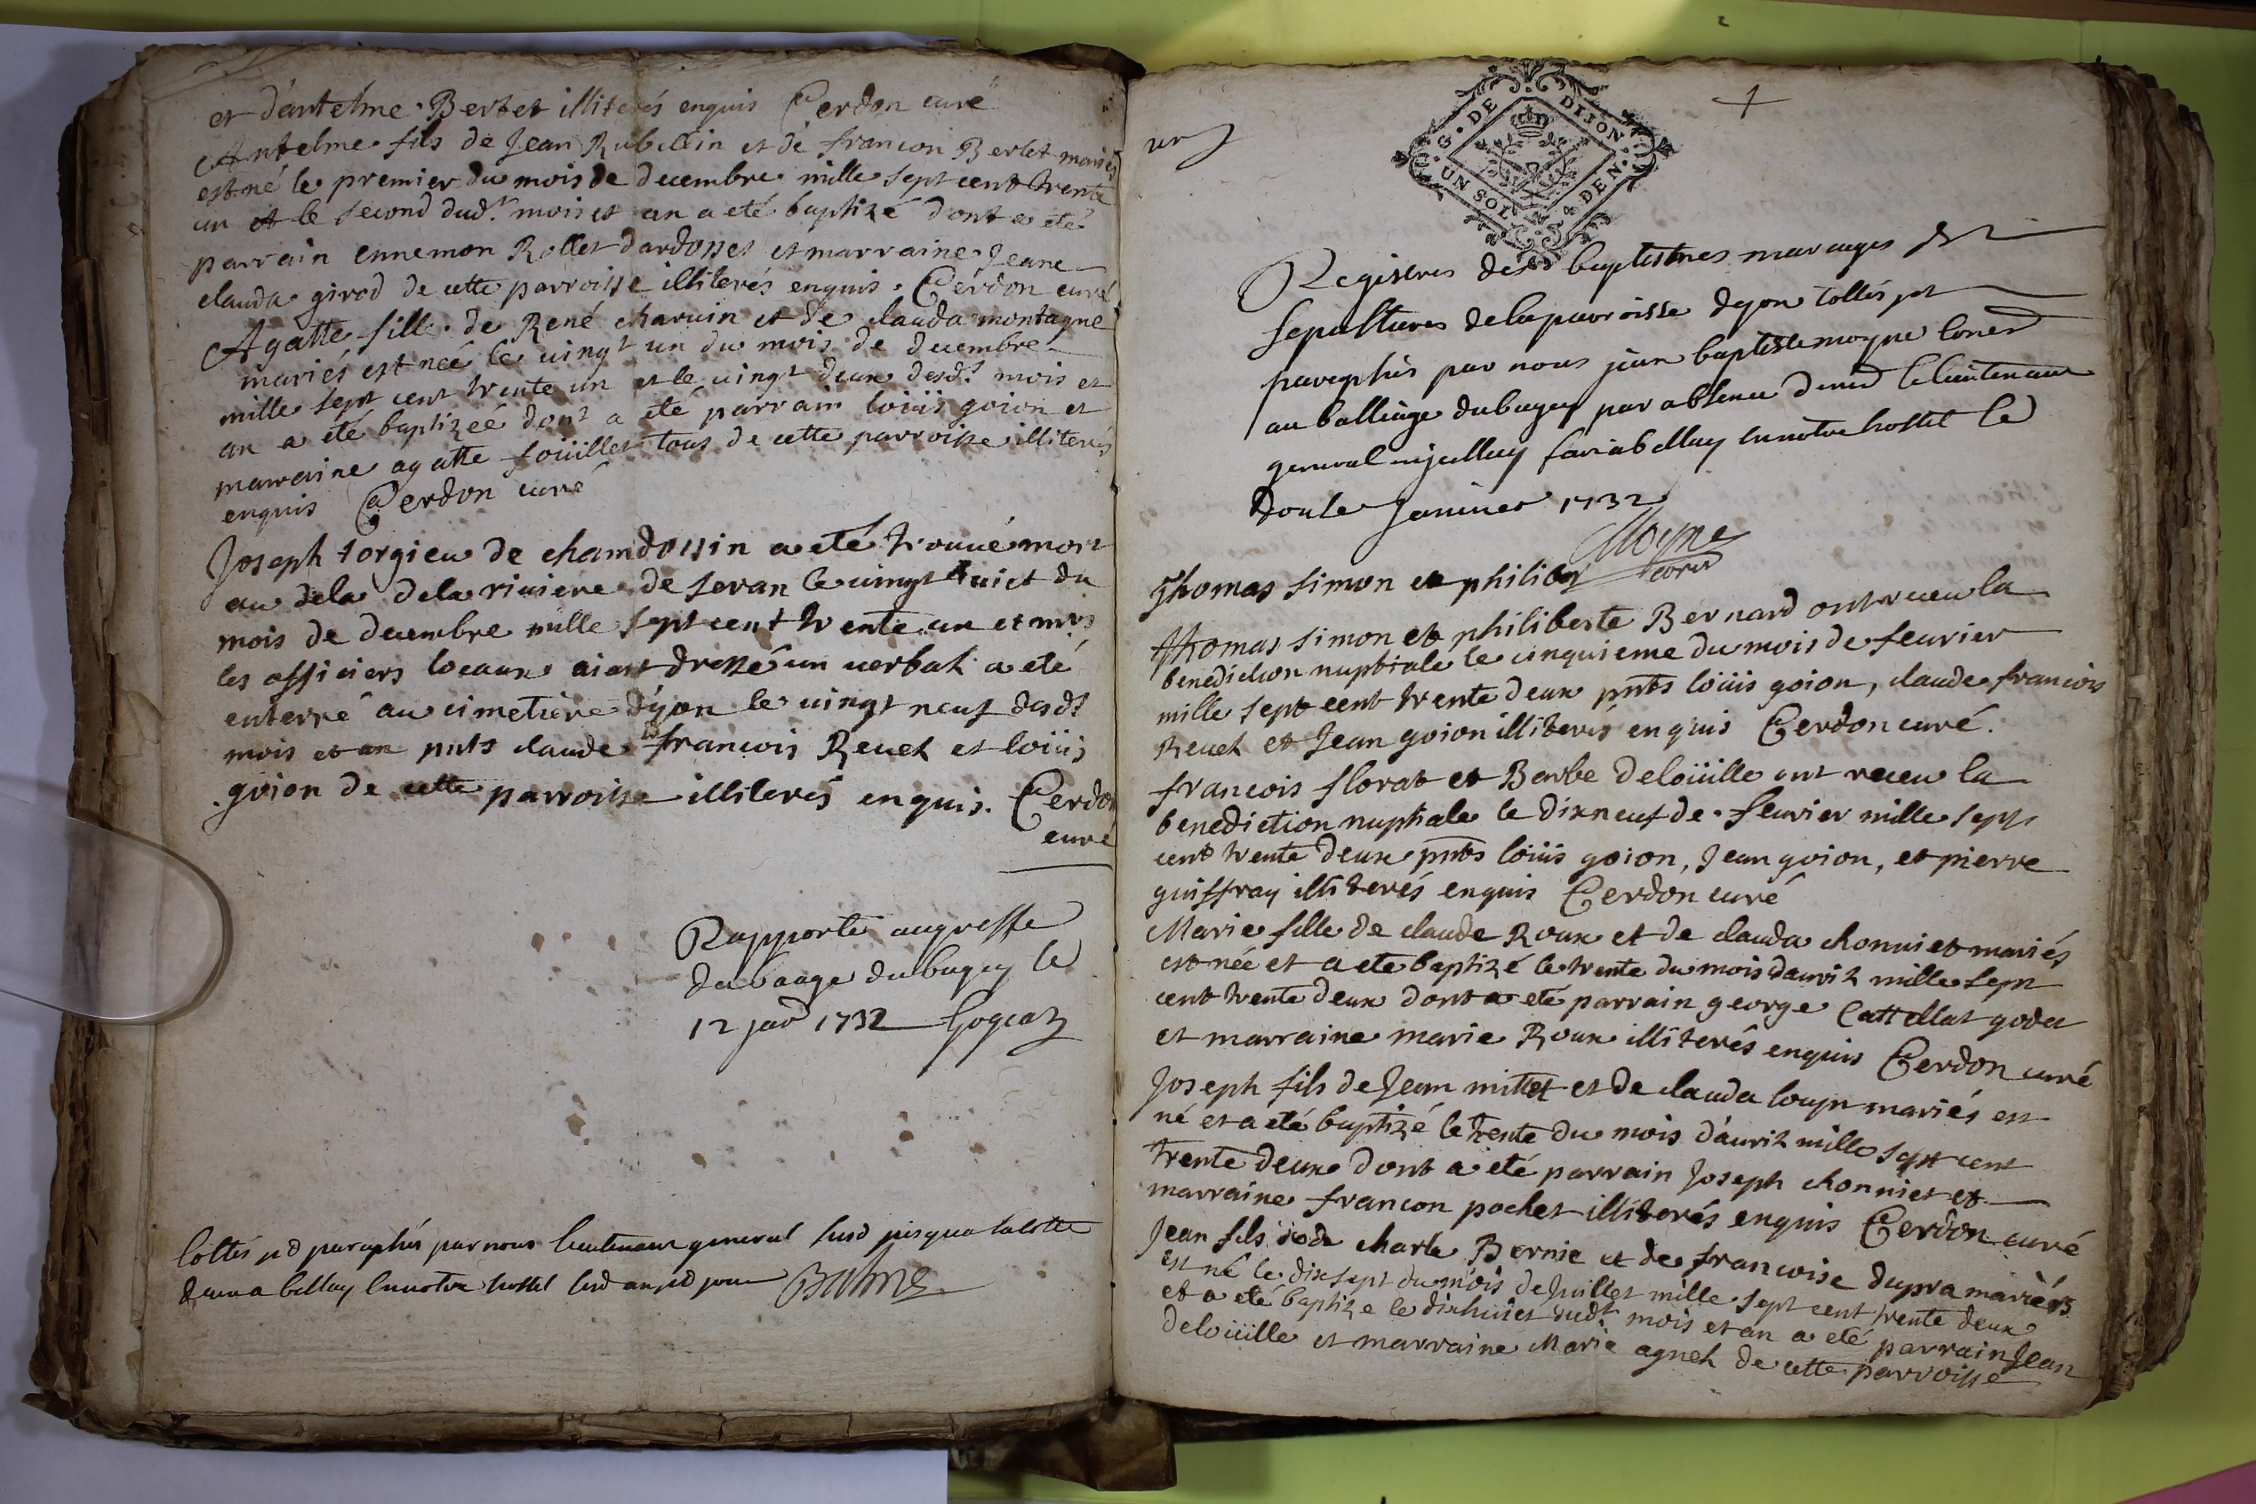 et d'antelme Berlet illiterés enquis Cerdon curé
Antelme fils de Jean Rubellin et de francon Berlet mariés
est né le premier du mois de decembre mille sept cent trente
un et le second dud.t mois et an a eté baptizé dont a eté
parrain ennemon Rollet dardosset et marraine Jeane
clauda girod de cette parroisse illiterés enquis. Cerdon curé
Agatte fille de René charuin et de clauda montagne
mariés est neé le uingt un du mois de decembre
mille sept cent trente un et le uingt deux desd.s mois et
an a eté baptizeé dont a eté parrain loüis goion et
marraine agatte foüillet tous de cette parroisse illiterés
enquis Cerdon curé
Joseph torgieu de chamdossin a eté trouué mort
au dela de la riuiere de seran le uingt huict du
mois de decembre mille sept cent trente un et mrs
les officiers locaux aiant dressé un uerbal a eté
enterré au cimetière d'yon le uingt neuf desd.s
mois et an pnts claude francois Reuel et loüis
goion de cette parroisse illiterés enquis. Cerdon
curé
Rapporté au greffe
du baage du bugey le
12 janr 1732
Cottés et paraphés par nous lieutenant general susd jusqua la cotte
a bellay en notre hostel
un
1
G. DE DIJON
UN SOL 4 DEN.
Registres des baptistres mariages et
sepultures de la parroisse dyon Cottés et
paraphés par nous jean baptiste moyne coner
au balliage du bugey par absence le lieutenant
general a bellay en notre hostel le
douze Januier 1732
Moyne
Thomas simon et philib
Thomas simon et philiberte Bernard ont receu la
benediction nuptiale le cinquieme du mois de feurier
mille sept cent trente deux pnts loüis goion, claude francois
Reuel et Jean goion illiterés enquis Cerdon curé.
francois florat et Barbe deloüille ont receu la
benediction nuptiale le dixneuf de feurier mille sept
cent trente deux pnts loüis goion, Jean goion, et pierre
guiffray illiterés enquis Cerdon curé
Marie fille de claude Roux et de clauda chonniet mariés
est née et a ete baptizé le trente du mois dauril mille sept
cent trente deux dont a eté parrain george Cattellat godet
et marraine marie Roux illiterés enquis Cerdon curé
Joseph fils de Jean millet et de clauda mariés est
né et a eté baptizé le trente du mois d'auril mille sept cent
trente deux dont a eté parrain Joseph chonniet et
marraine francon pochet illiterés enquis Cerdon curé
Jean fils de charle Bernie et de francoise dupra mariés
est né le dixsept du mois de Juillet mille sept cent trente deux
et a eté baptize le dixhuict dudt mois et an a eté parrain Jean
deloüille et marraine Marie agnel de cette parroisse